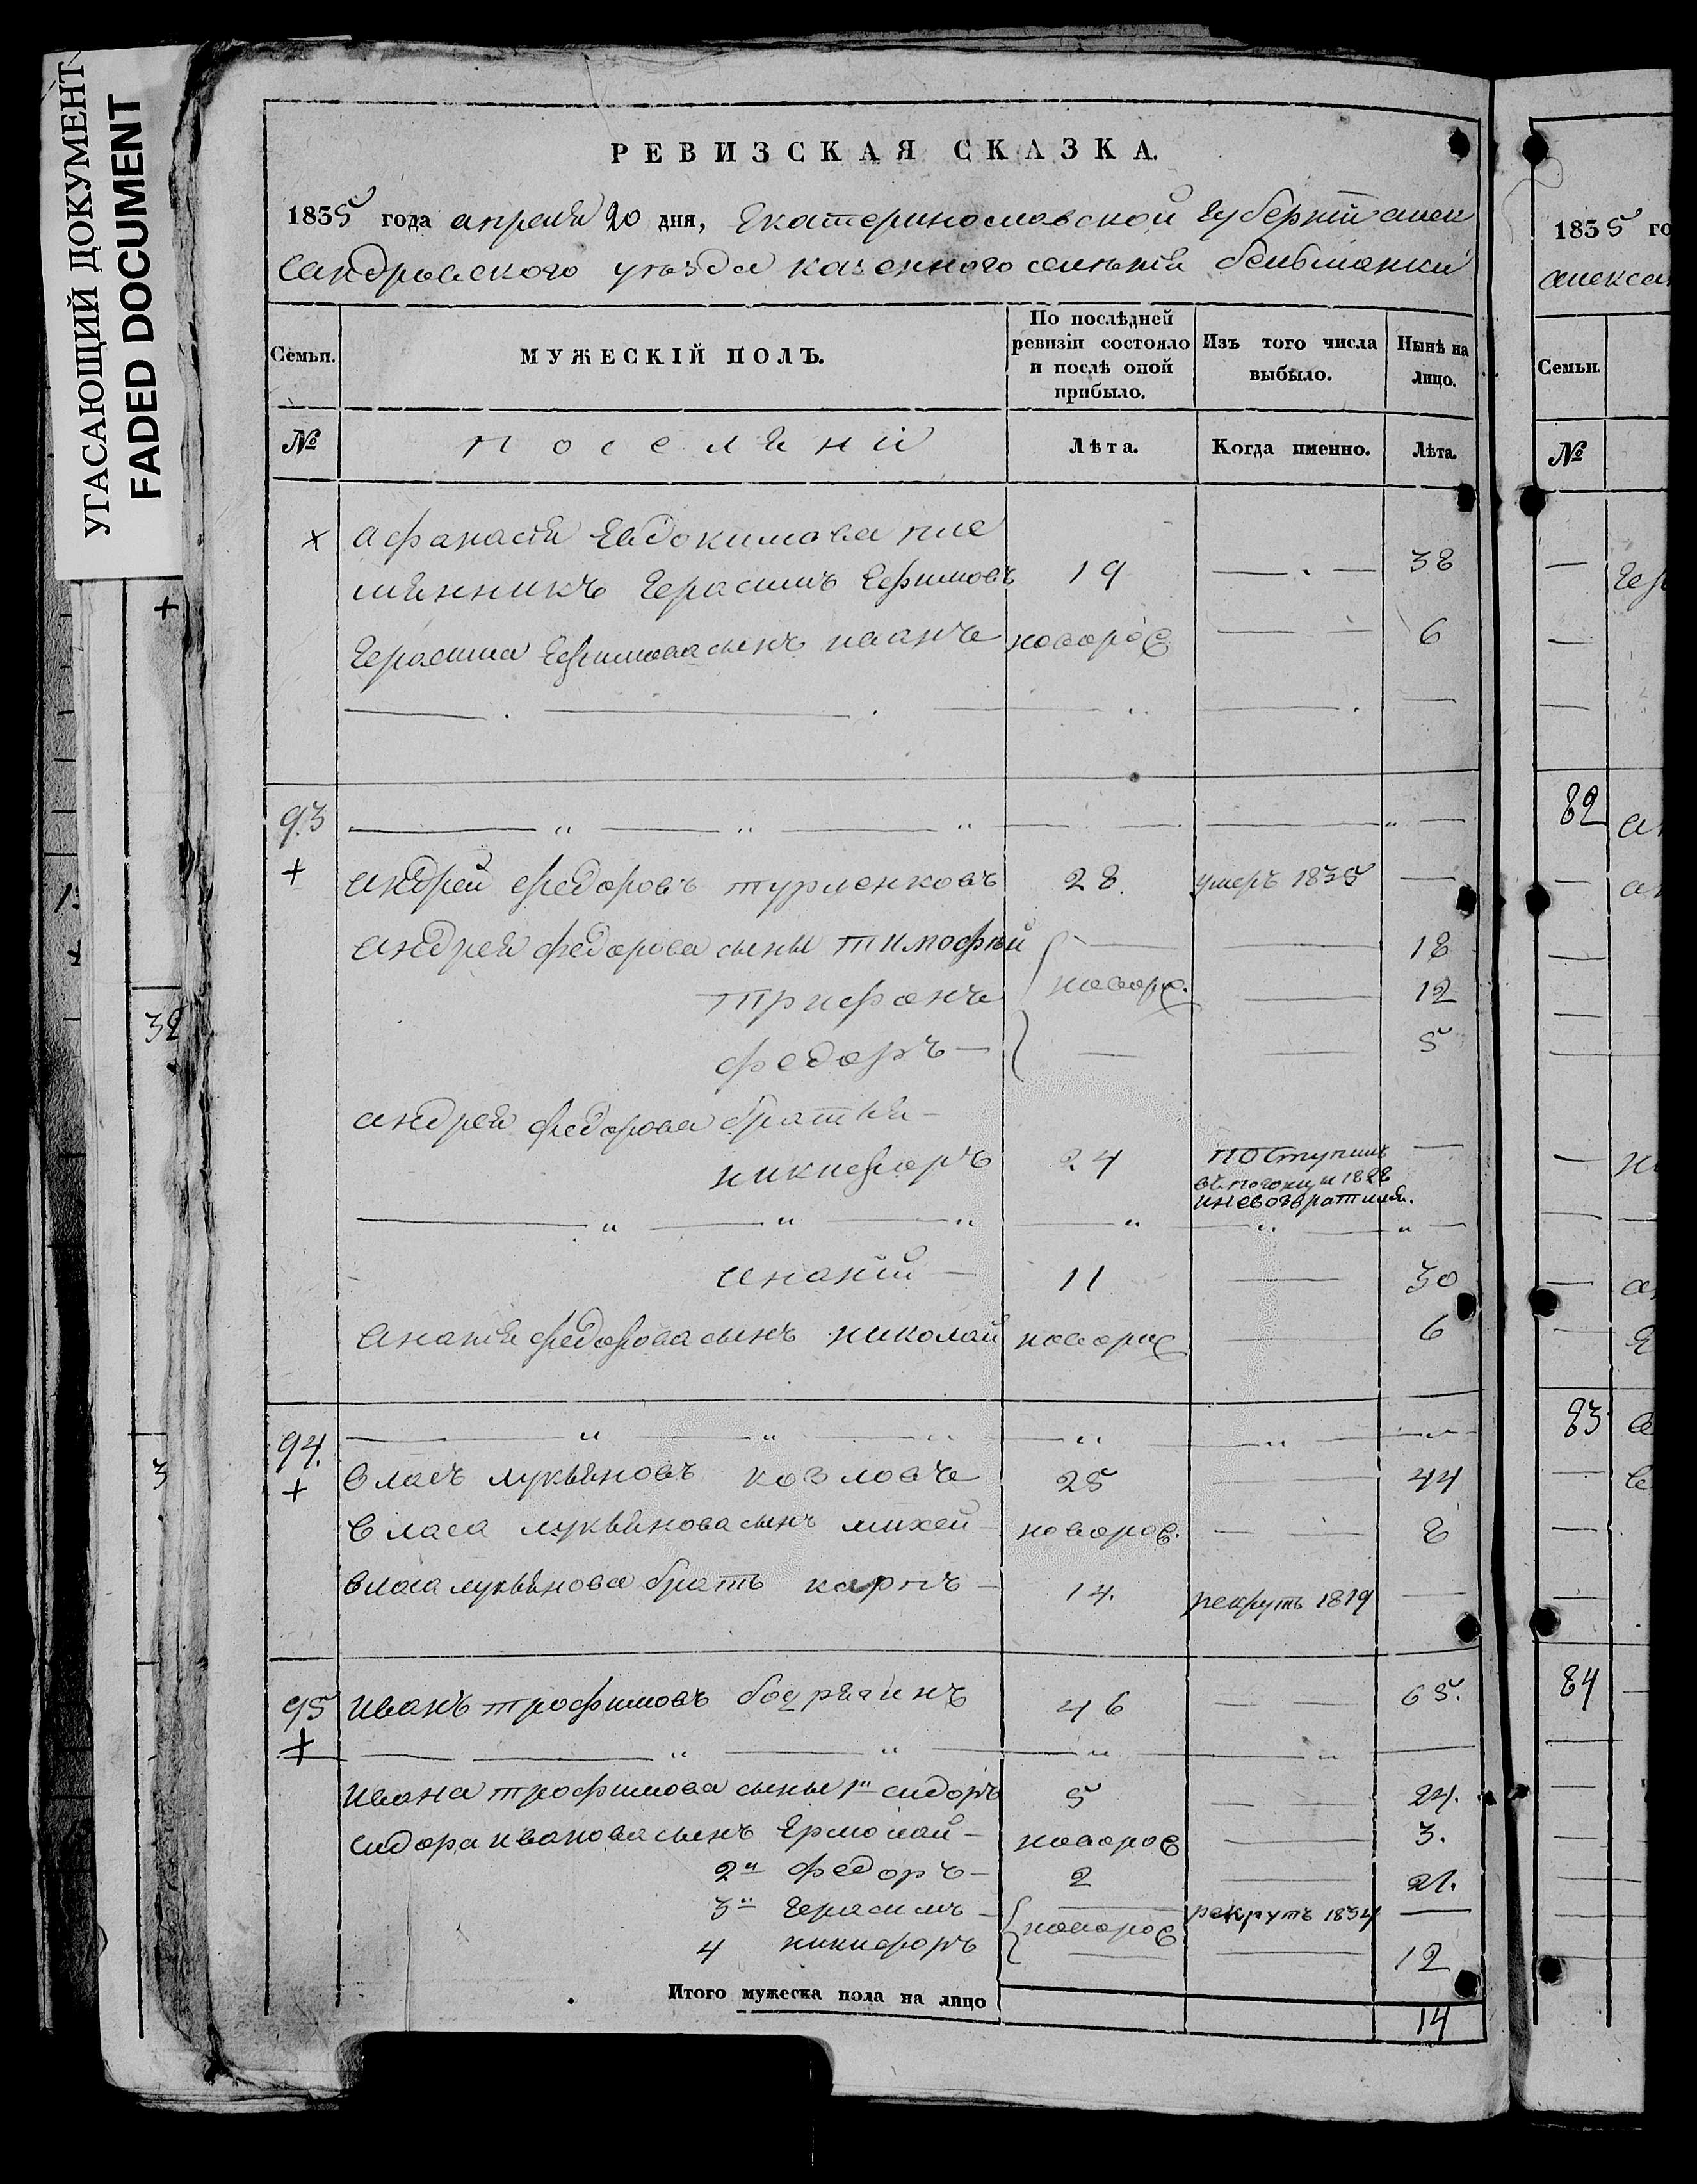 УГАСАЮЩИЙ ДОКУМЕНТ
FADED DOCUMENT
РЕВИЗСКАЯ СКАЗКА.
1835 года апреля 20 дня, Екатеринославской губернiи алек
сандровского уѣзда казенного селенiя белманки
Семьи.
МУЖЕСКIЙ ПОЛЪ.
По послѣдней ревизiи состояло и послѣ оной прибыло.
Изъ того числа выбыло.
Нынѣ на лицо.
№ поселяни Лѣта. Когда именно. Лѣта.
х афанасiя Евдокимова пле
мянникъ Герасимъ Ефимовъ 19 — 38
Герасима Ефимова сынъ иванъ новорож — 6
93
+ андрей федоровъ турленковъ 28. умеръ 1835 —
андрея федорова сыны тимофѣй — — 18
трифонъ новорж. — 12
федоръ — — — 5
андрея федорова братья —
никифоръ 24 поступилъ —
въ погонцы 1828
иневозвратился.
ананiй — 11 — 30
ананiя федорова сынъ николай новорж — 6
94.
+ власъ лукьяновъ козловъ 25 — 44
власа лукьянова сынъ михей — новорож. — 8
власа лукьянова братъ карпъ — 14. рекрутъ 1819 —
95 иванъ трофимовъ 46 — 65.
+
ивана трофимова сыны 1й сидоръ 5 — 24.
сидора иванова сынъ Ермолай — новорож — 3.
2й федоръ — 2 — 21.
3й Герасимъ — рекрутъ 1834 —
4 никифоръ новорож — 12
Итого мужеска пола на лицо 14
1835 го
алексан
Семьи.
№
82
83
84
32
3